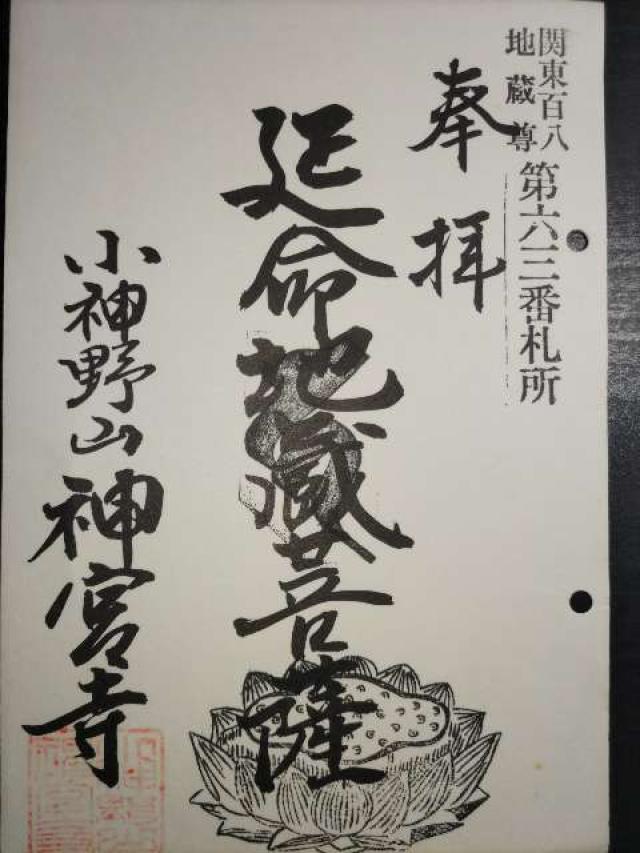 関東百八
地蔵尊
第六三番札所
奉拝
延命地蔵菩薩
小神野山神宮寺